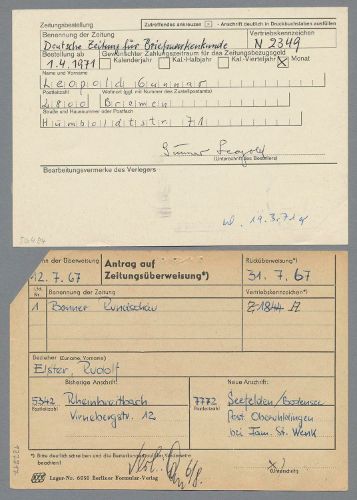 Zeitungsbestellung Zutreffendes ankreuzen ☒ - Anschrift deutlich in Druckbuchstaben ausfüllen
Benennung der Zeitung Vertriebskennzeichen
Deutsche Zeitung für Briefmarkenkunde N 2349
Bestellt ab Gewünschter Zahlungszeitraum für das Zeitungsbezugsgeld
1.4.1971 Kalenderjahr Kal.-Halbjahr Kal.-Vierteljahr Monat
Name und Vorname
Leopold Gunnar
Postleitzahl Wohnort (ggf. mit Nummer des Zustellpostamts)
280 Bremen
Straße und Hausnummer oder Postfach
Humboldtstr 71
Gunnar Leopold
(Unterschrift des Bestellers)
Bearbeitungsvermerke des Verlegers
19.3.71
der Überweisung
Antrag auf
Zeitungsüberweisung*)
Rücküberweisung*)
12.7.67
31.7.67
Lfd. Nr. Benennung der Zeitung Vertriebskennzeichen*)
1 Bonner Rundschau
Bezieher (Zuname, Vorname)
Elster, Rudolf
Bisherige Anschrift: Neue Anschrift:
5342 Rheinbreitbach
Postleitzahl
Virnebergstr. 12
7772 Seefelden/Bodensee
Postleitzahl
Post Oberuhldingen
bei Fam. St. Wenk
*) Bitte deutlich schreiben und die
(Unterschrift)
Lager-Nr. 6050 Berliner Formular-Verlag